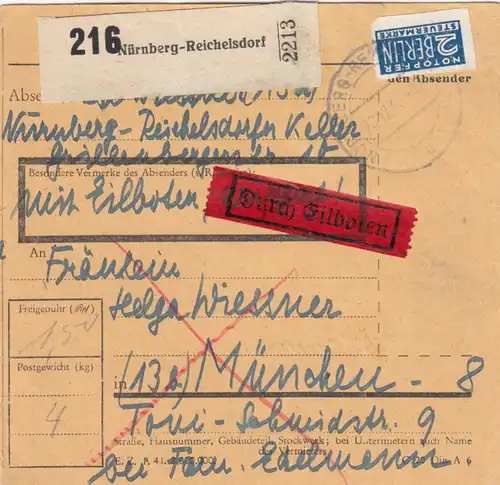 216 Nürnberg-Reichelsdorf 2213
NOTOPFER
2 BERLIN
STEUERMARKE
den Absender
Abse
Wiessner
Nürnberg-Reichelsdorfer Keller
Besondere Vermerke des Absenders (s. R
mit Eilboten
Durch Eilboten
An Fräulein
Helga Wiessner
Freigebühr
150
Postgewicht (kg)
4
in (13a) München - 8
Toni-Schmidstr. 9
Straße, Hausnummer, Gebäudeteil, Stockwerk; bei Untermietern auch Name
des Vermieters
bei Fam. Edelmann
E. Z. P. 41. 2.000.000) C 20 Din A 6